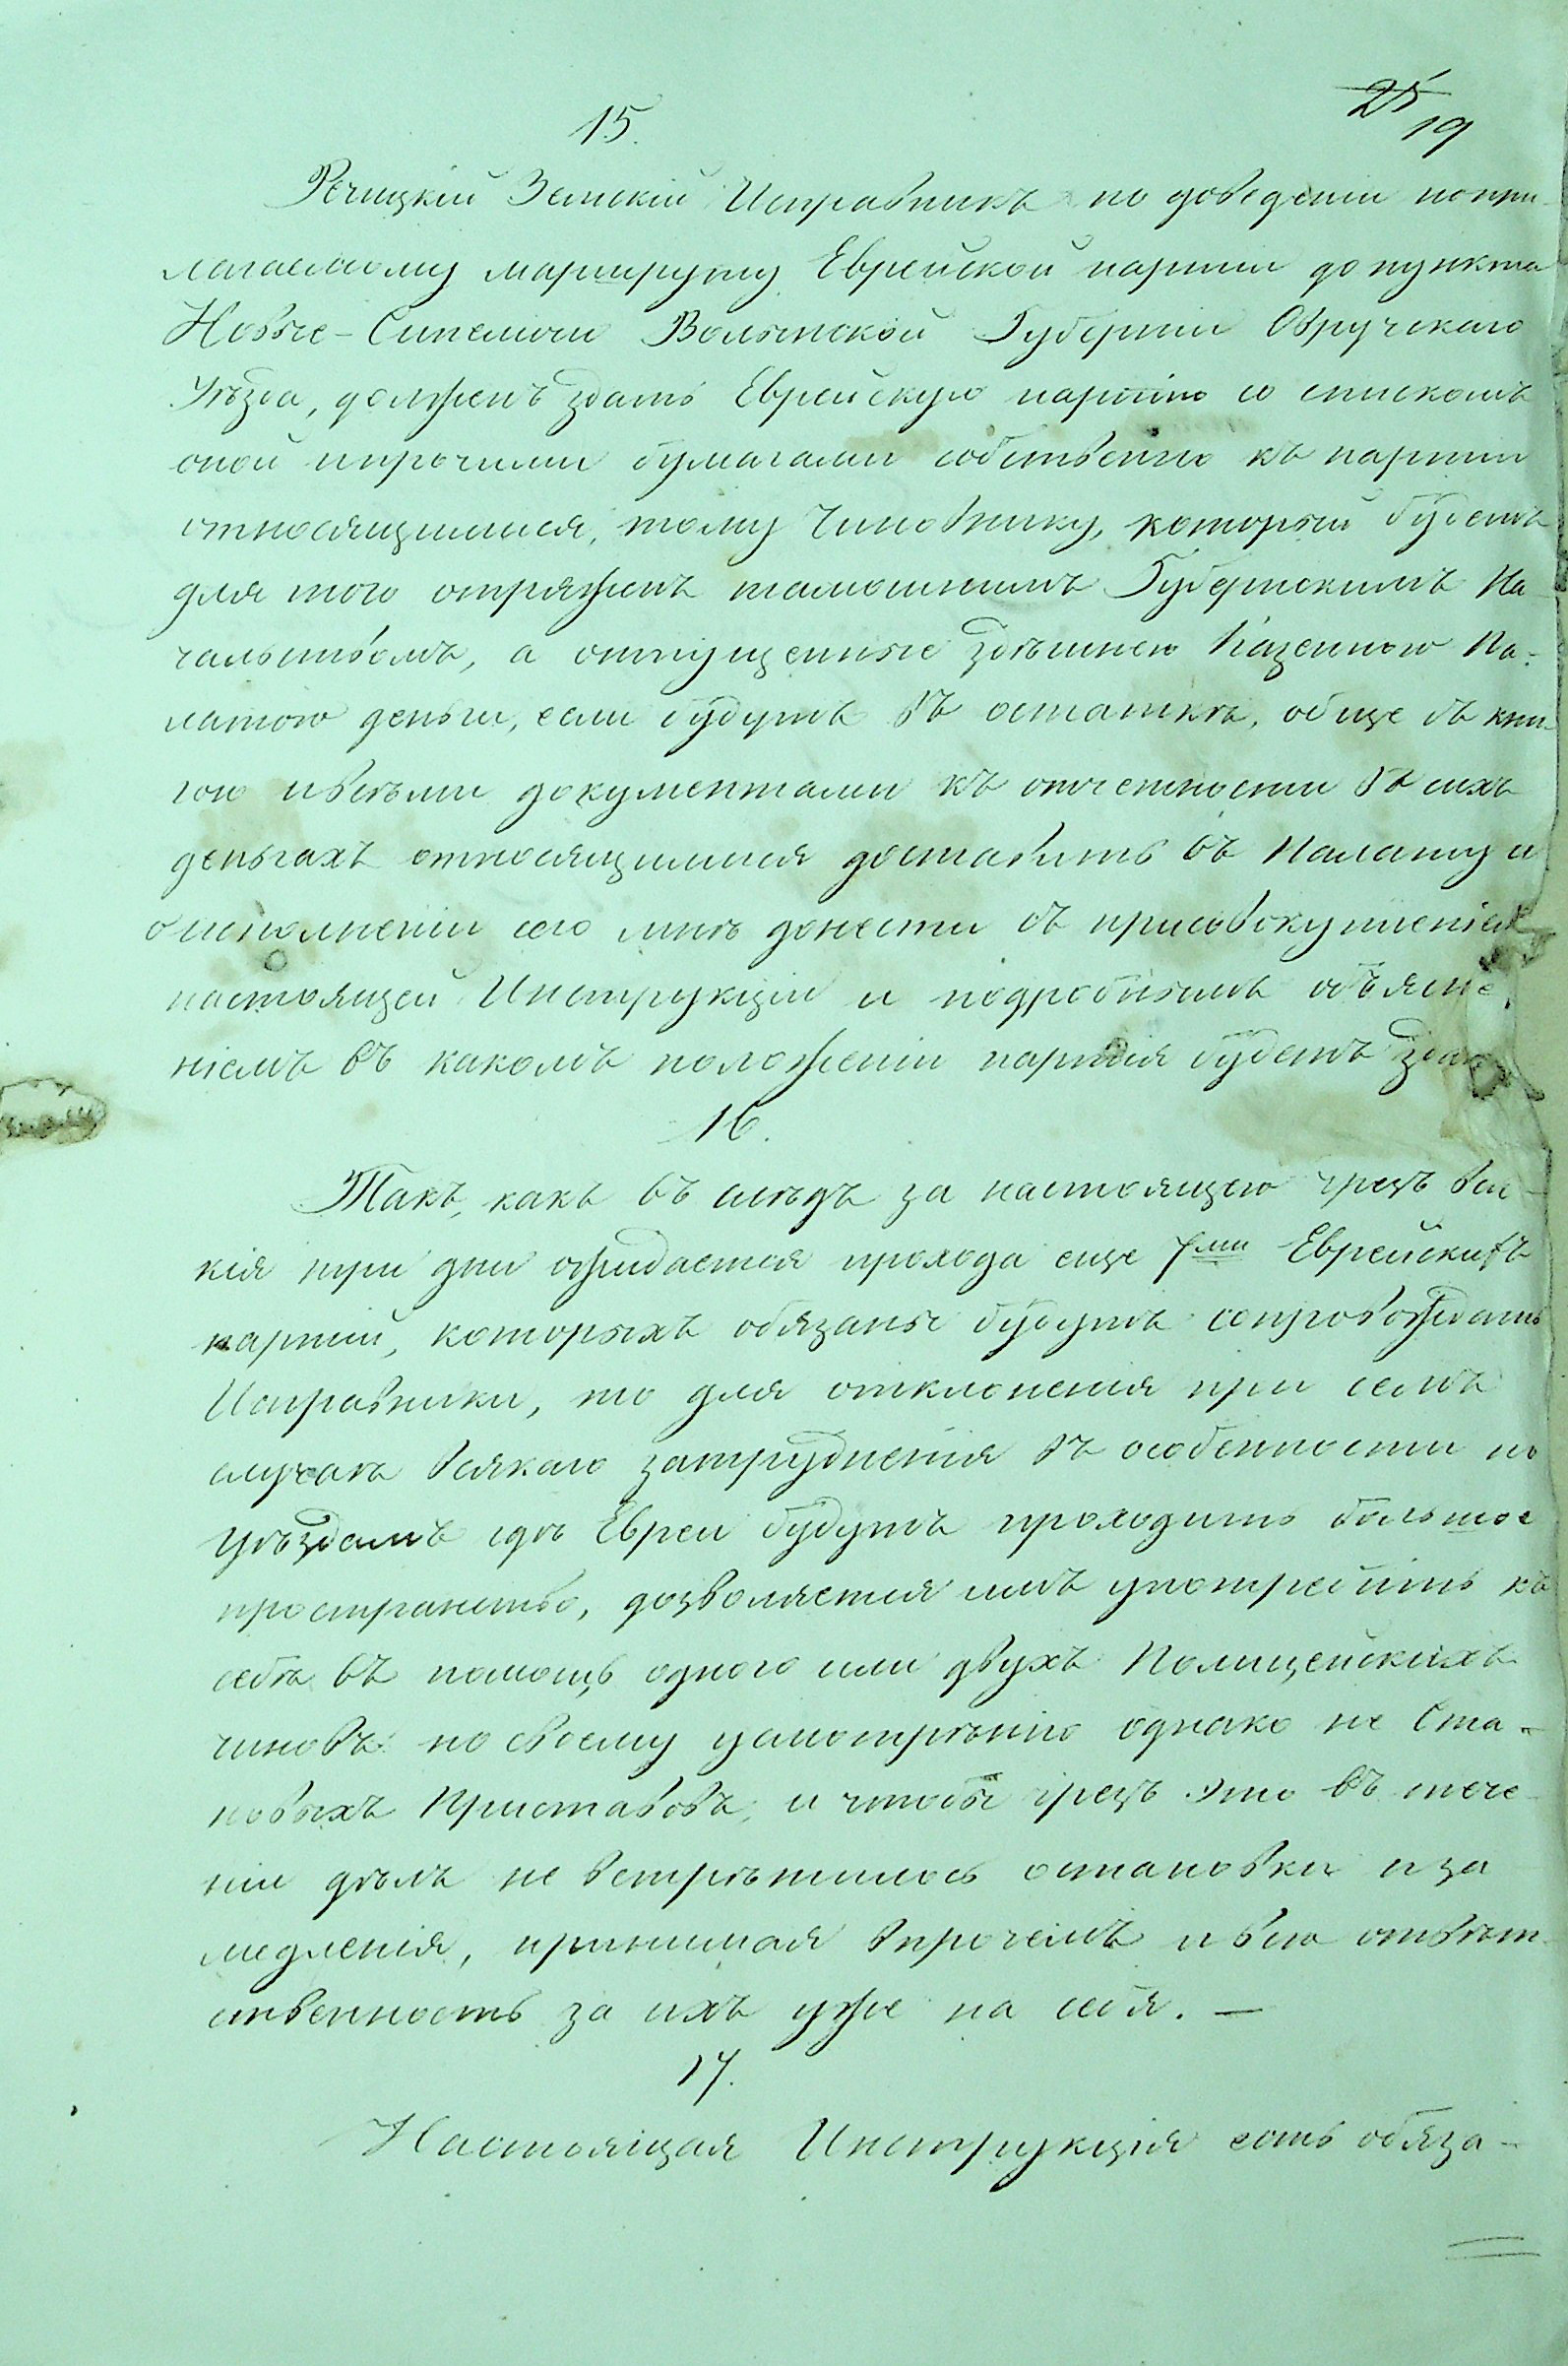 25
19
15.
Речицкій Земскій Исправникъ по доведеніи попри-
лагаемому маршруту Еврейской партіи до пункта
Новые-Сипемичи Волынской Губерніи Овручскаго
Уѣзда, долженъ здать Еврейскую партію со спискомъ
оной ипрочими бумагами собственно къ партіи
относящимися, тому Чиновнику, который будетъ
для того отряженъ тамошнимъ Губернскимъ На-
чальствомъ, а отпущенные здѣшнею Казенною Па-
латою деньги, если будутъ въ остаткѣ, обще съ кни-
гою ивсѣми документами къ отчетности въ сихъ
деньгахъ относящимися доставить въ Палату и
о исполненіи сего мнѣ донести съ присовокупленіемъ
настоящей Инструкціи и подробнымъ объясне-
ніемъ въ какомъ положеніи партія будетъ здана
16.
Такъ, какъ въ слѣдъ за настоящею чрезъ вся-
кія три дни ожидается прохода еще 7ми Еврейскихъ
партій, которыхъ обязаны будутъ сопровождать
Исправники, то для отклоненія при семъ
случаѣ всякаго затрудненія въ особенности по
уѣздамъ гдѣ Евреи будутъ проходить большое
пространство, дозволяется имъ употребить къ
себѣ въ помощь одного или двухъ Полицейскихъ
чиновъ по своему усмотрѣнію однако не Ста-
новыхъ Приставовъ, и чтобы чрезъ это въ тече-
ніи дѣлъ не встрѣтилось остановки иза
медленія, принимая впрочемъ ивсю отвѣт-
ственность за ихъ уже на себя. —
17.
Настоящая Инструкція есть обяза-